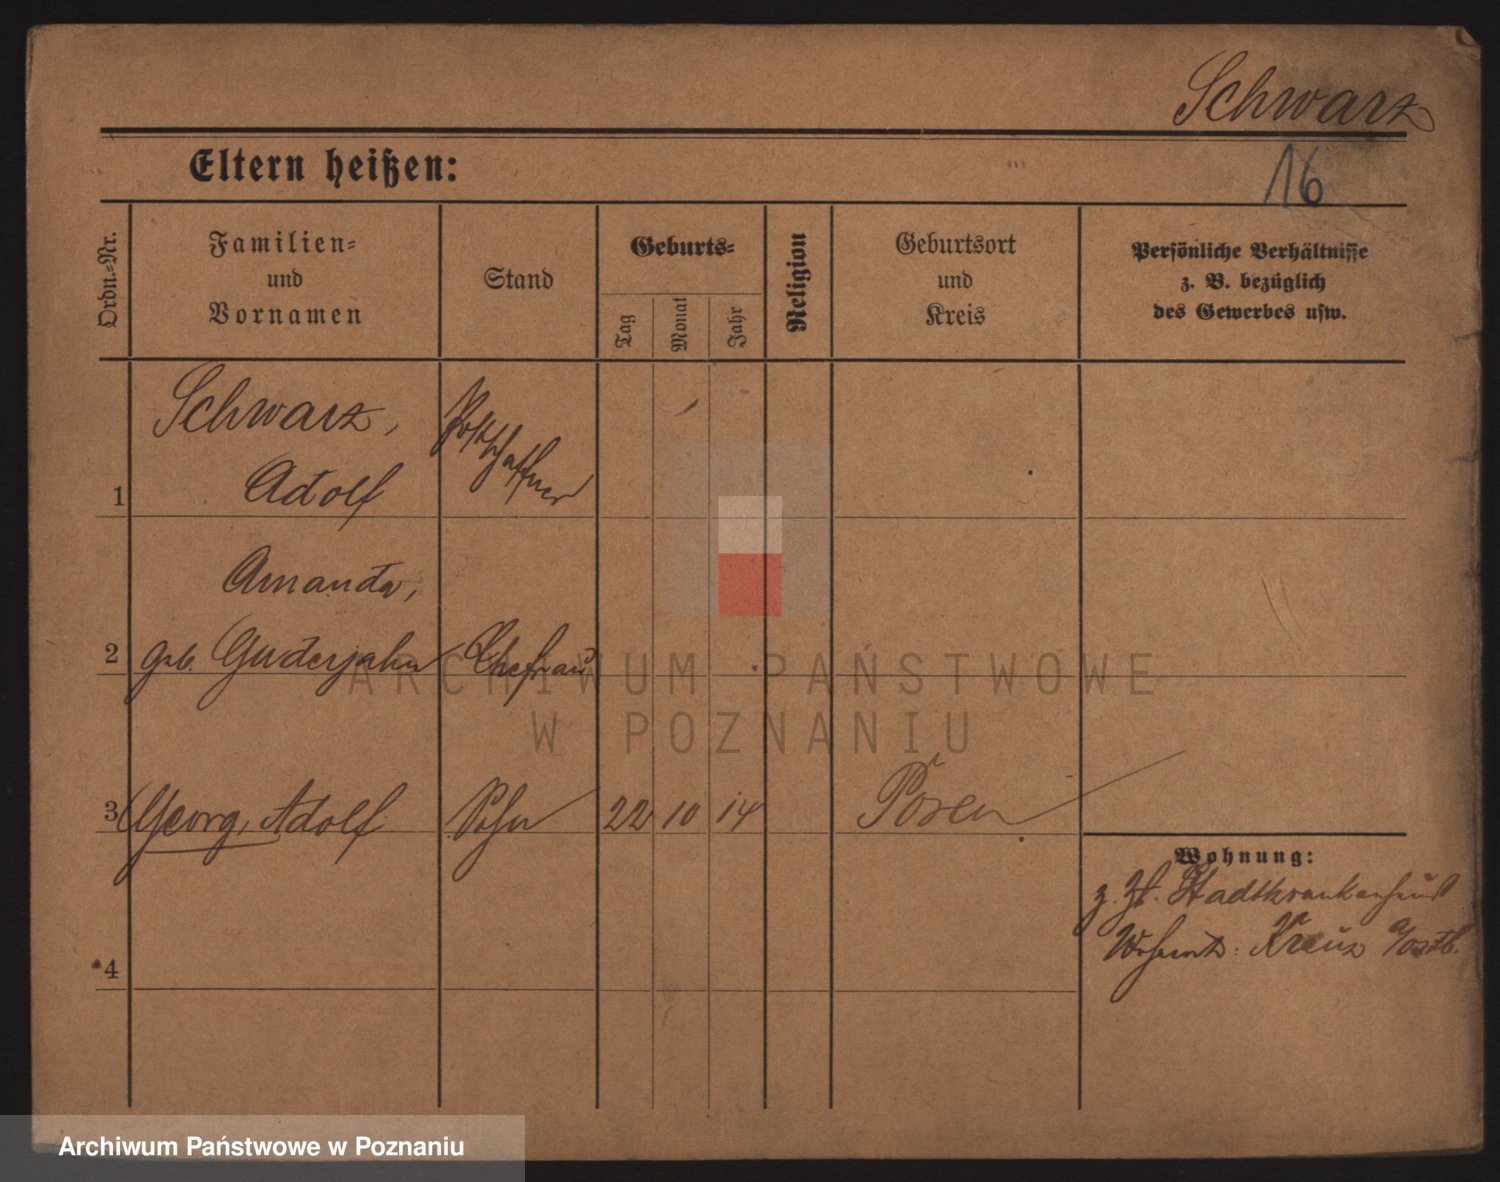 Schwarz
Eltern heißen:
16
Ordn.-Nr.
Familien-
und
Vornamen
Stand
Geburts-
Tag
Monat
Jahr
Religion
Geburtsort
und
Kreis
Persönliche Verhältnisse
z. B. bezüglich
des Gewerbes usw.
Schwarz,
Adolf
Postschaffner
1
Amanda,
2 geb. Guderjahn Ehefrau
3 Georg, Adolf Sohn 22 10 14 Posen
Wohnung:
z. Zt. Stadtkrankenhaus
Wohnort: Kreuz a/Ostb.
4
ARCHIWUM PAŃSTWOWE
W POZNANIU
Archiwum Państwowe w Poznaniu